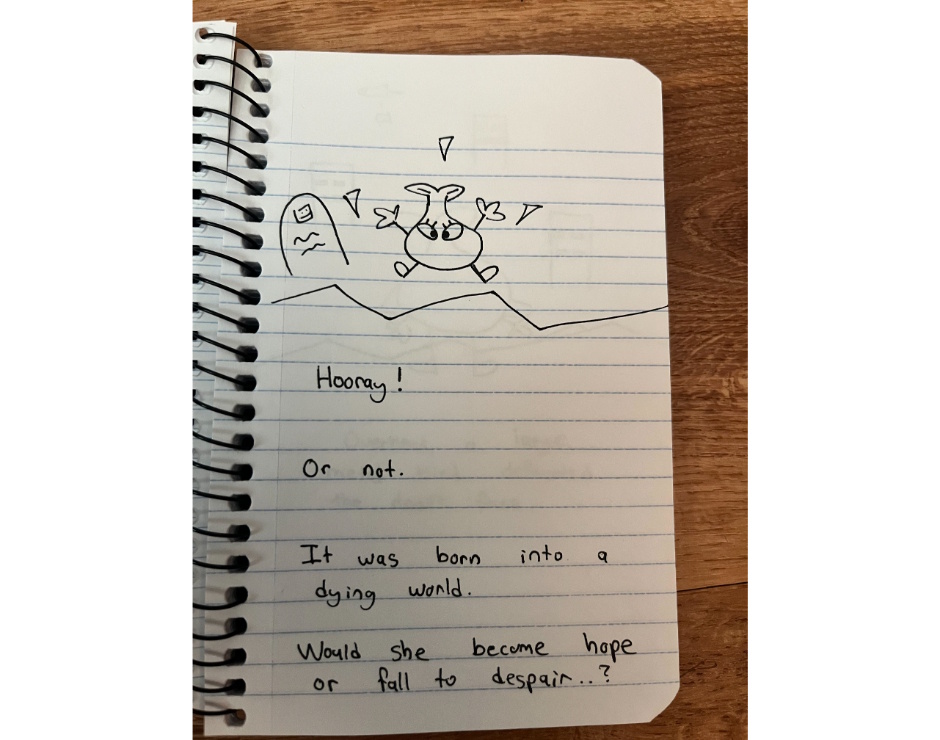 Hooray!
Or not.
It was born into a
dying world.
Would she become hope
or fall to despair..?